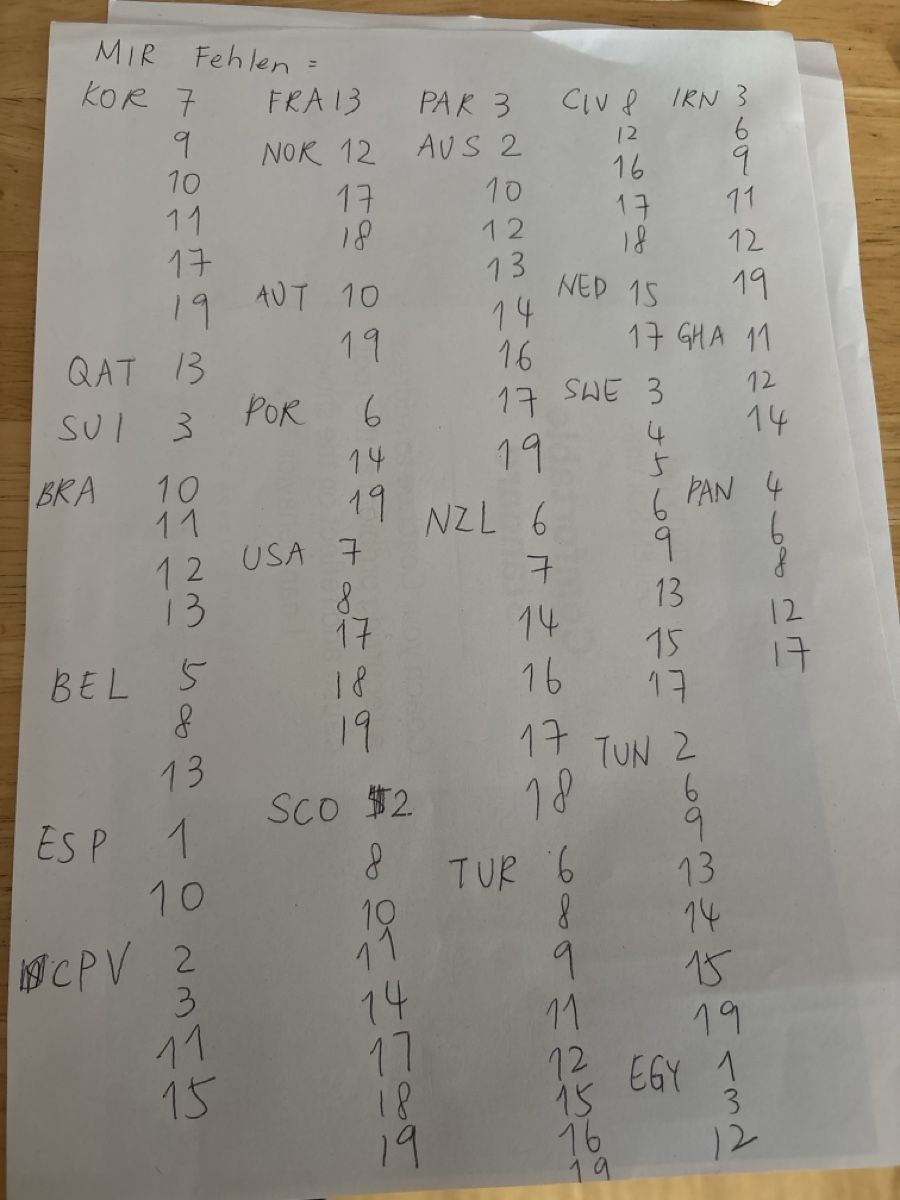 MIR Fehlen =
KOR 7
9
10
11
17
19
QAT 13
SUI 3
BRA 10
11
12
13
BEL 5
8
13
ESP 1
10
CPV 2
3
11
15
FRA 13
NOR 12
17
18
AUT 10
19
POR 6
14
19
USA 7
8
17
18
19
SCO 2
8
10
11
14
17
18
19
PAR 3
AUS 2
10
12
13
14
16
17
19
NZL 6
7
14
16
17
18
TUR 6
8
9
11
12
15
16
19
CIV 8
12
16
17
18
NED 15
17
SWE 3
4
5
6
9
13
15
17
TUN 2
6
9
13
14
15
19
EGY 1
3
12
IRN 3
6
9
11
12
19
GHA 11
12
14
PAN 4
6
8
12
17